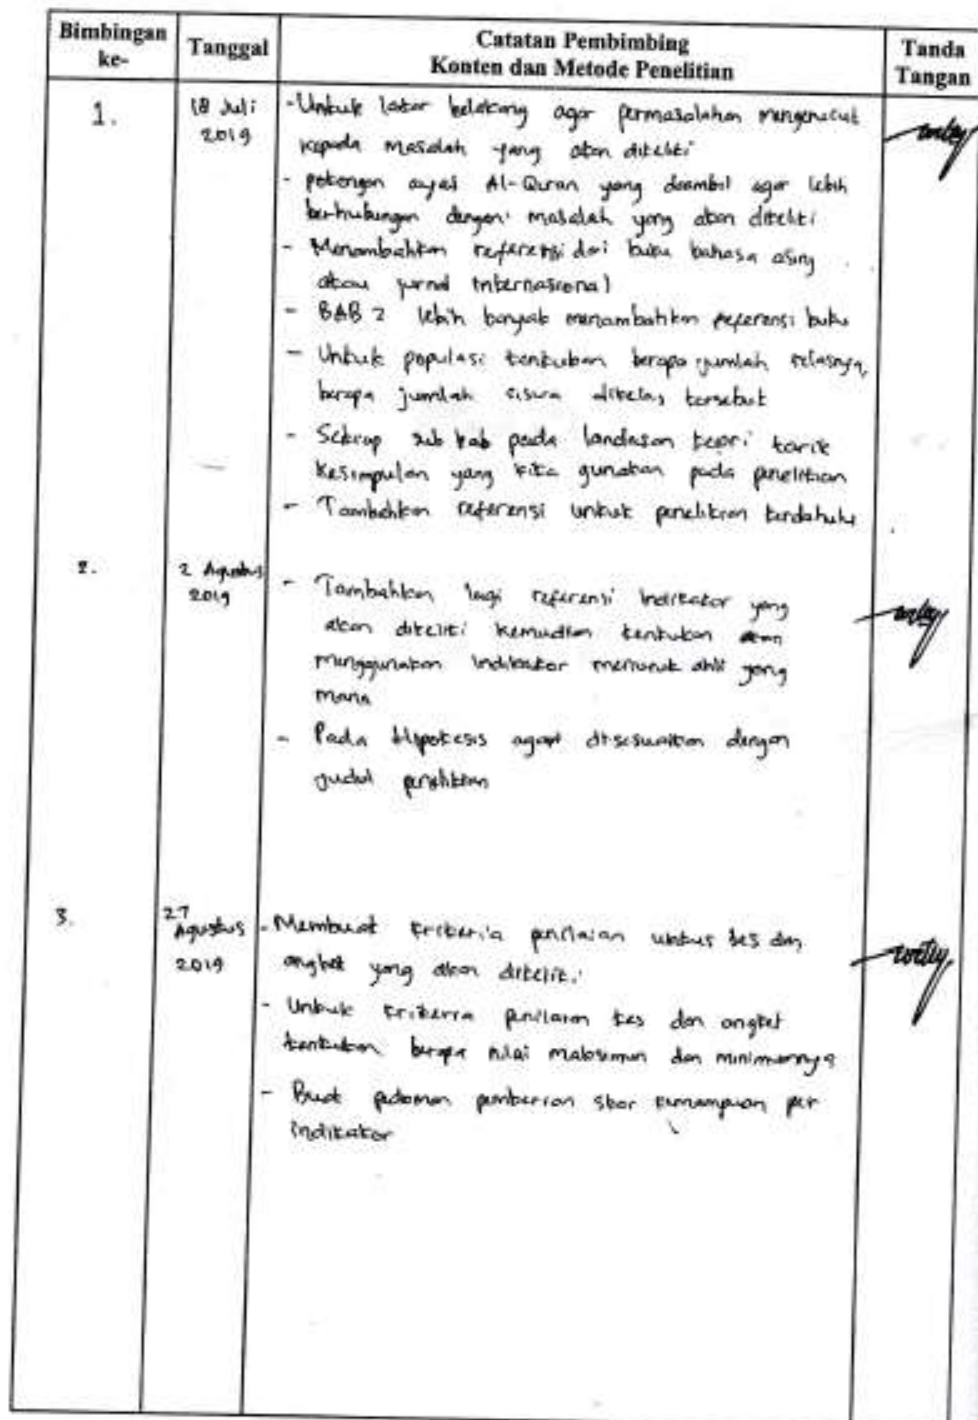 Bimbingan ke-
Tanggal
Catatan Pembimbing
Konten dan Metode Penelitian
Tanda Tangan
1.
18 Juli 2019
- Untuk latar belakang agar permasalahan mengerucut
kepada masalah yang akan diteliti
- potongan ayat Al-Quran yang diambil agar lebih
berhubungan dengan masalah yang akan diteliti
- Menambahkan referensi dari buku bahasa asing
atau jurnal internasional
- BAB 2 lebih banyak menambahkan referensi buku
- Untuk populasi tentukan berapa jumlah kelasnya,
berapa jumlah siswa dikelas tersebut
- Setiap sub bab pada landasan teori tarik
kesimpulan yang kita gunakan pada penelitian
- Tambahkan referensi untuk penelitian terdahulu
2.
2 Agustus 2019
- Tambahkan lagi referensi indikator yang
akan diteliti kemudian tentukan akan
menggunakan indikator menurut ahli yang
mana
- Pada Hipotesis agar disesuaikan dengan
judul penelitian
3.
27 Agustus 2019
- Membuat kriteria penilaian untuk tes dan
angket yang akan diteliti
- Untuk kriteria penilaian tes dan angket
tentukan berapa nilai maksimum dan minimumnya
- Buat pedoman pemberian skor kemampuan per
indikator